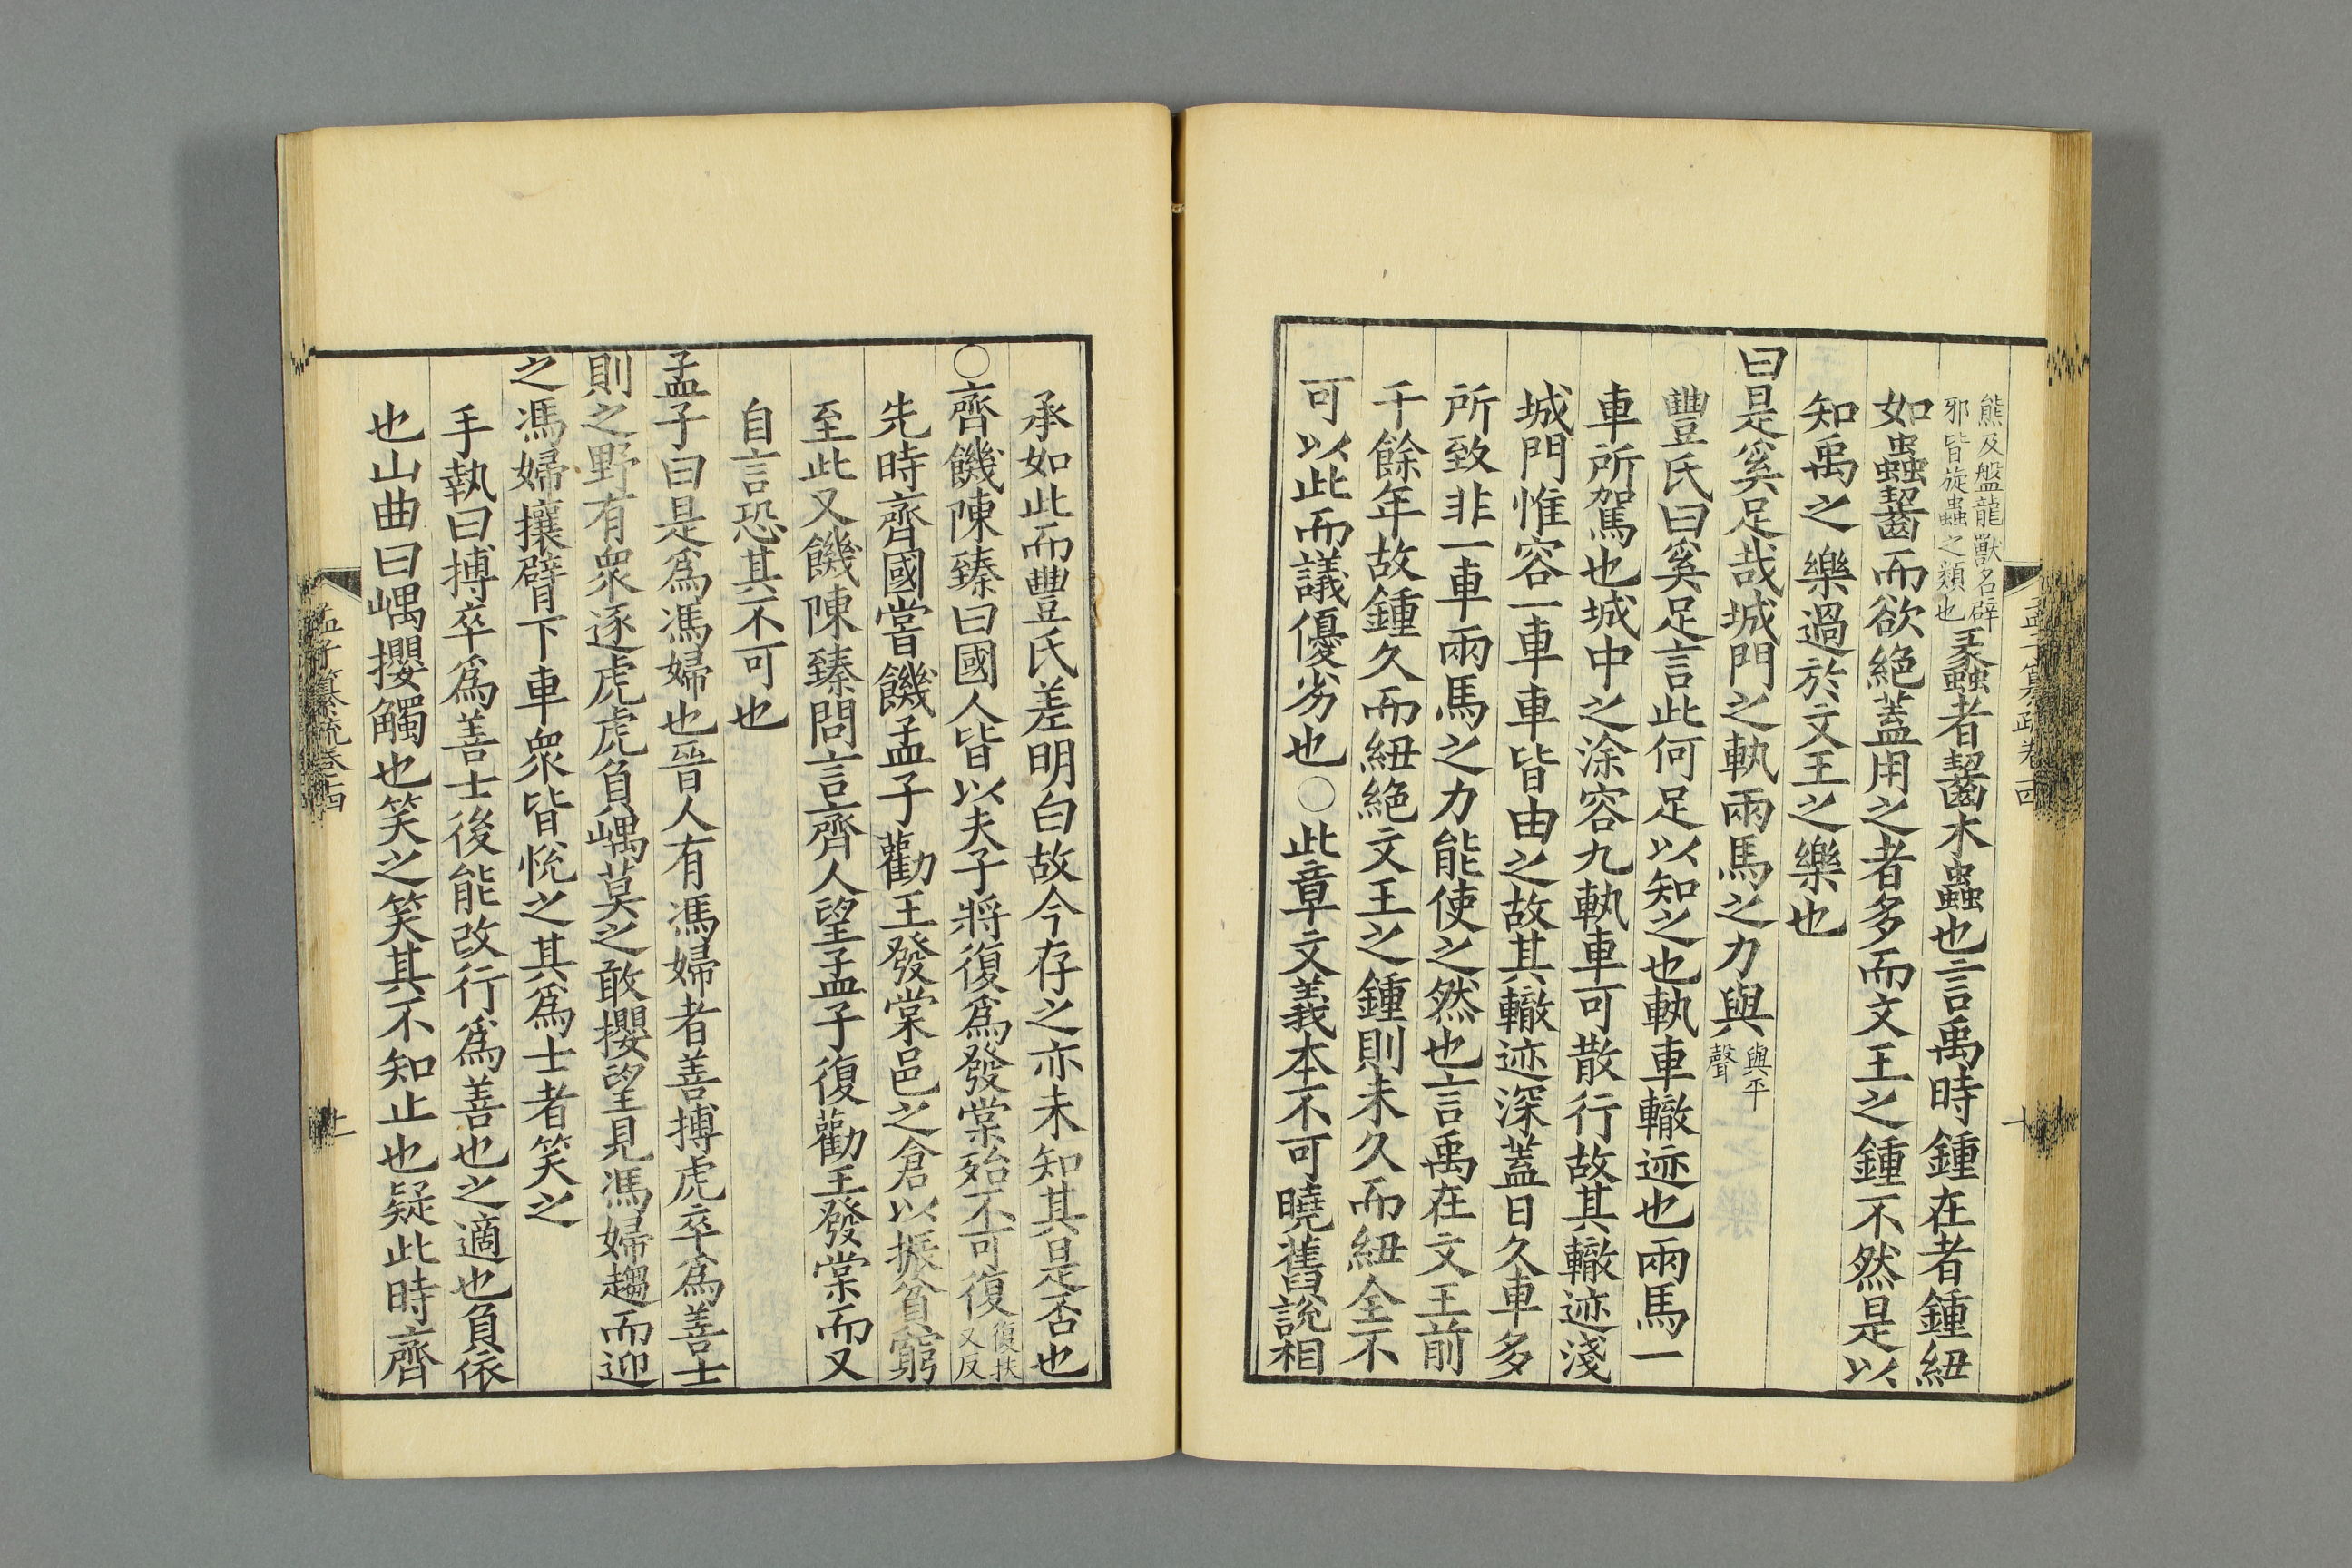 熊及盤龍獸名辟
邪皆旋蟲之類也
蠡者齧木蟲也言禹時鍾在者鍾紐
如蟲齧而欲絕蓋用之者多而文王之鍾不然是以
知禹之樂過於文王之樂也
曰是奚足哉城門之軌兩馬之力與
與平
聲
豐氏曰奚足言此何足以知之也軌車轍迹也兩馬一
車所駕也城中之涂容九軌車可散行故其轍迹淺
城門惟容一車車皆由之故其轍迹深蓋日久車多
所致非一車兩馬之力能使之然也言禹在文王前
千餘年故鍾久而紐絕文王之鍾則未久而紐全不
可以此而議優劣也○此章文義本不可曉舊說相
孟子纂疏卷十四
十
承如此而豐氏差明白故今存之亦未知其是否也
○齊饑陳臻曰國人皆以夫子將復為發棠殆不可復
復扶
又反
先時齊國嘗饑孟子勸王發棠邑之倉以振貧窮
至此又饑陳臻問言齊人望孟子復勸王發棠而又
自言恐其不可也
孟子曰是為馮婦也晉人有馮婦者善搏虎卒為善士
則之野有衆逐虎虎負嵎莫之敢攖望見馮婦趨而迎
之馮婦攘臂下車衆皆悅之其為士者笑之
手執曰搏卒為善士後能改行為善也之適也負依
也山曲曰嵎攖觸也笑之笑其不知止也疑此時齊
孟子纂疏卷十四